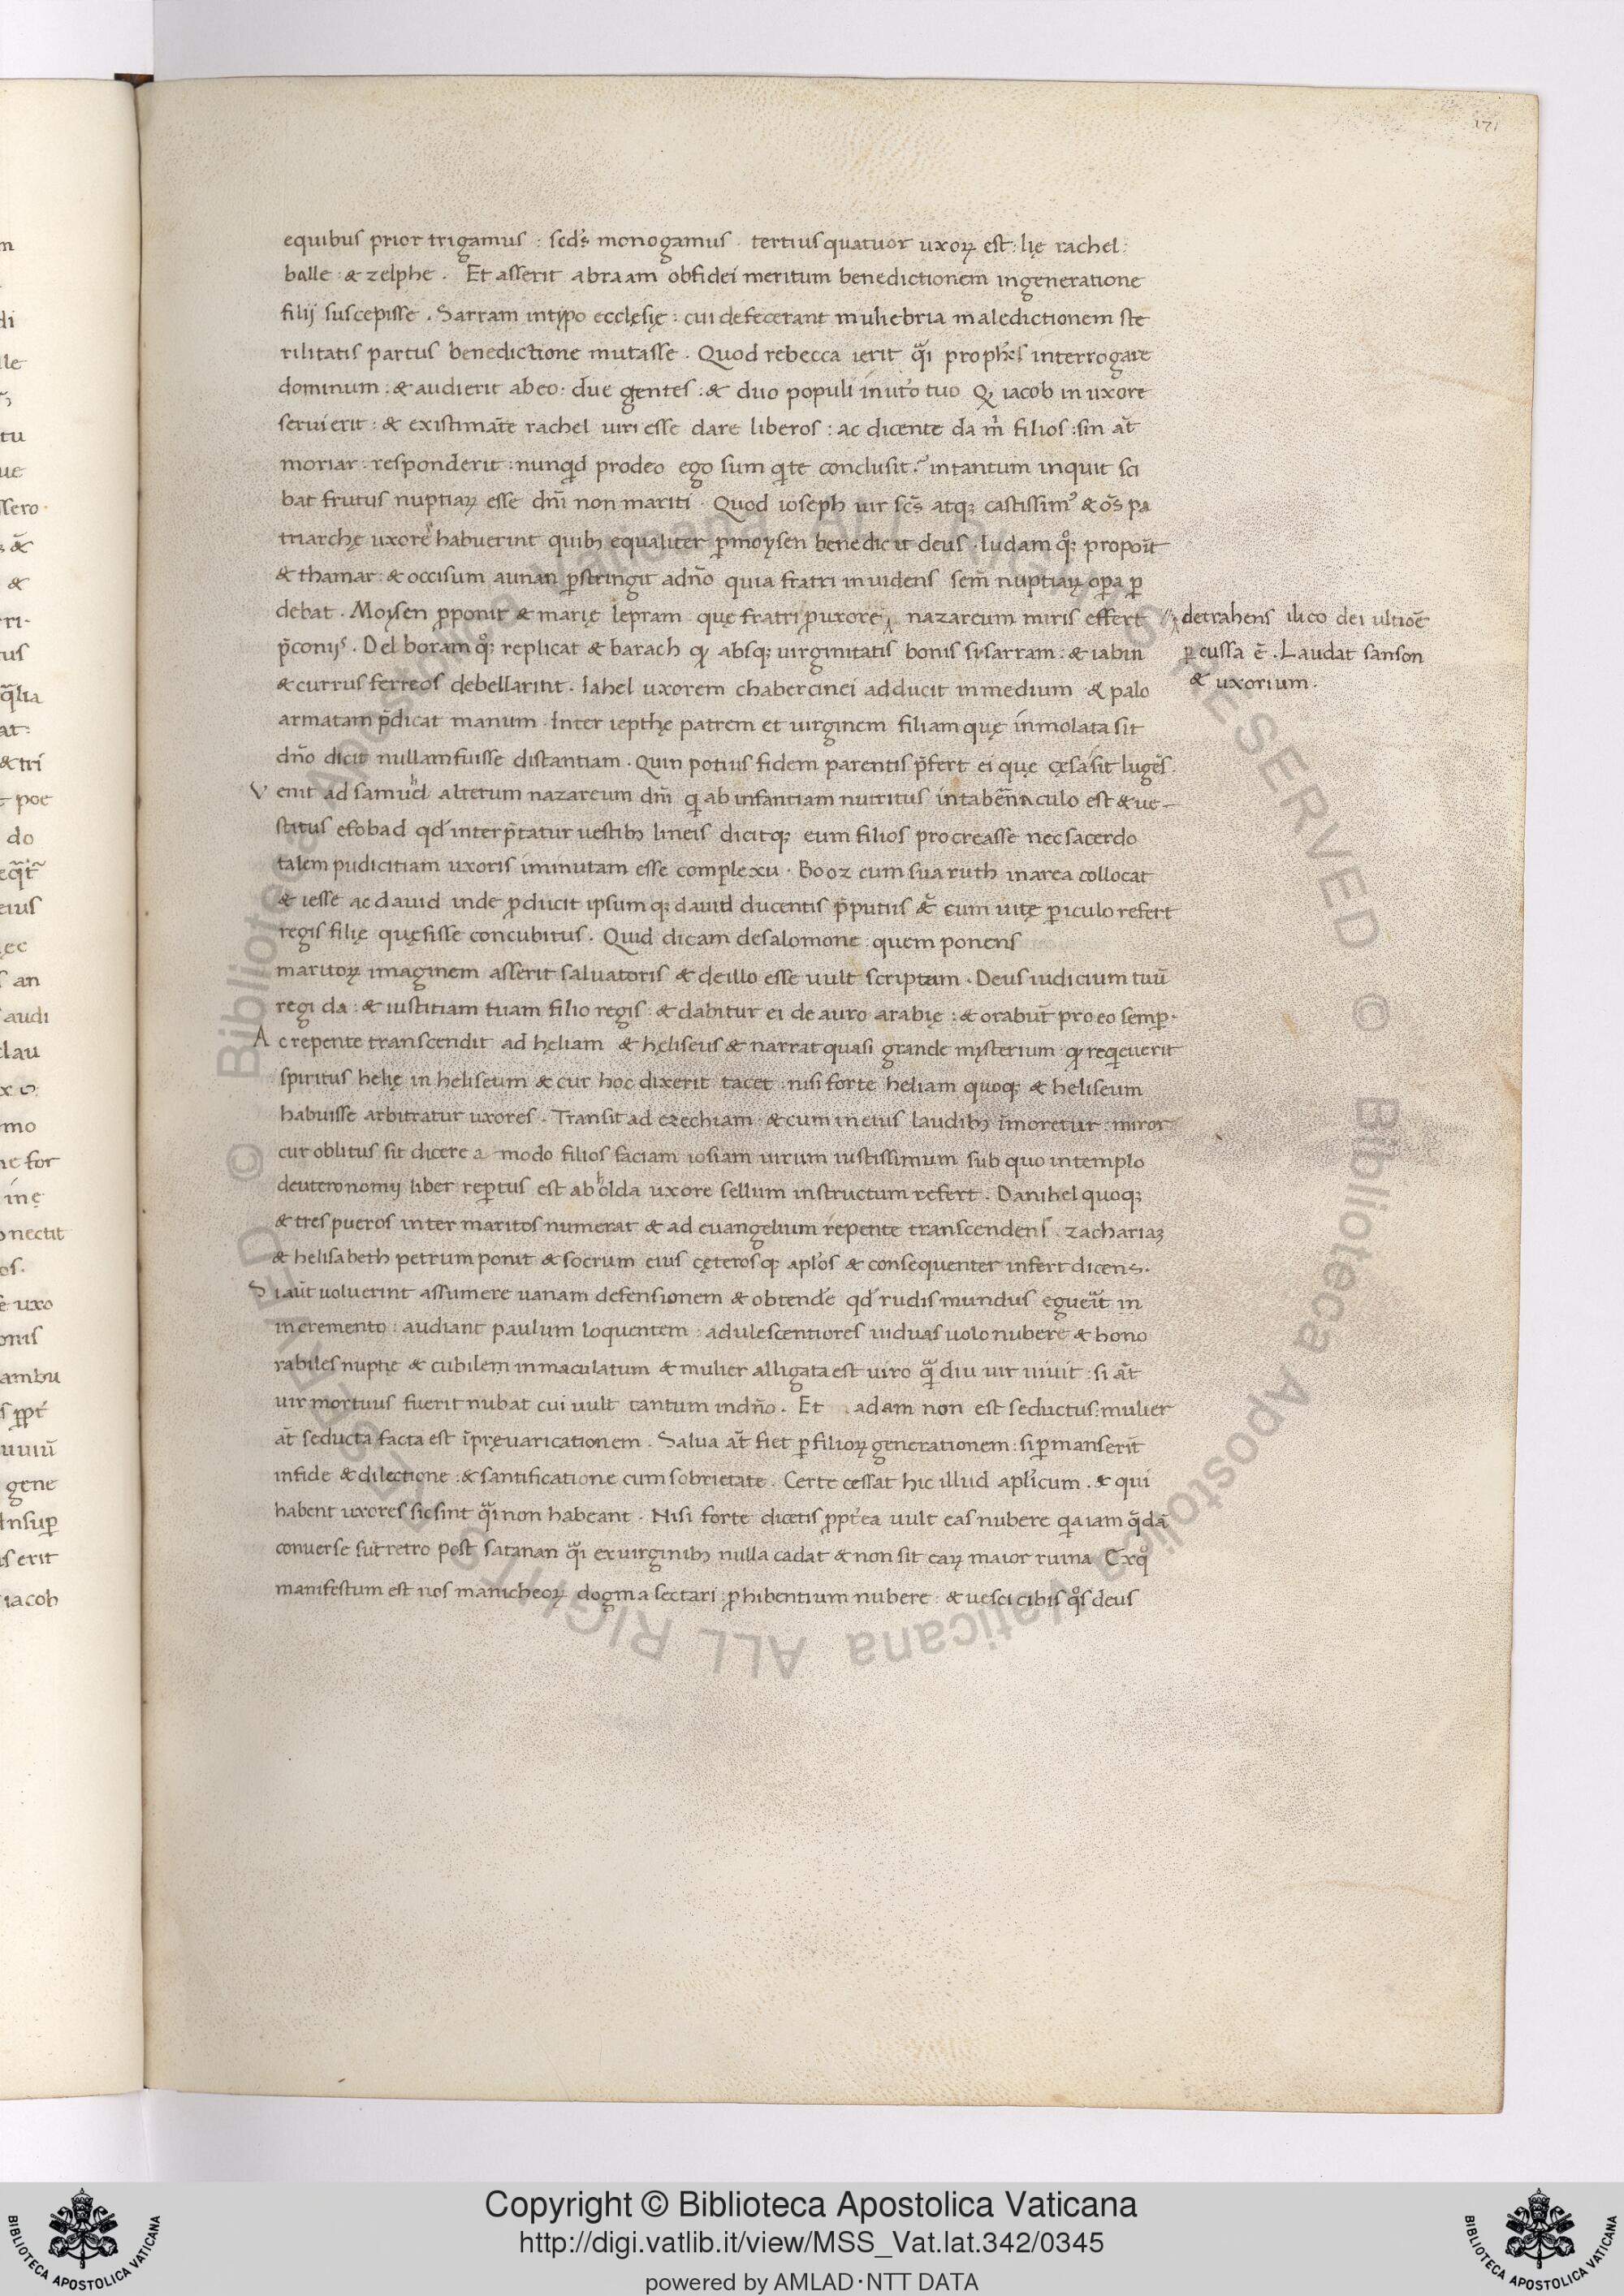 171
equibus prior trigamus : scđs monogamus . tertius quatuor uxoꝝ est : lię rachel :
balle : & zelphe . Et asserit abraam obfidei meritum benedictionem ingeneratione
filij suscepisse . Sarram intypo ecclęsię : cui defecerant muliebria maledictionem ste
rilitatis partus benedictione mutasse . Quod rebecca ierit q̃i prophes interrogare
dominum : & audierit abeo : due gentes : & duo populi inutō tuo Qꝫ iacob in uxore
seruierit : & existimāte rachel uiri esse dare liberos : ac dicente da m̊ filios : sin āt
moriar : responderit : nunqd prodeo ego sum qi te conclusit . intantum inquit sci
bat frutus nuptiaꝝ esse dn̄i non mariti . Quod ioseph uir sc̄s atqꝫ castissimꝰ & om̄s pa
triarchę uxorē habuerint quibꝫ equaliter ꝑmoysen benedicit deus . Iudam qͦꝫ propoīt
& thamar : & occisum aunan ꝑstringit adn̄o quia fratri inuidens sem̄ nuptiaꝝ oꝑa ꝑ
debat . Moysen ꝓponit & marię lepram quę fratri ꝓuxore nazareum miris effert
detrahens ilico dei ultiōe
ꝑcussa ē . Laudat sanson
& uxorium .
p̄conijs . Delboram qͦꝫ replicat & barach qꝫ absqꝫ uirginitatis bonis sysarram : & iabin
& currus ferreos debellarint . Iahel uxorem chabercinei adducit inmedium & palo
armatam p̄dicat manum . Inter iepthę patrem et uirginem filiam quę inmolata sit
dn̄o dicit nullamfuisse distantiam . Quin potius fidem parentis p̄fert ei que cęsa sit lugēs .
Venit ad samuel alterum nazareum dn̄i qi ab infantiam nutritus intabēnaculo est & ue-
stitus efobad qd̄ interp̄tatur uestibꝫ lineis dicitqꝫ eum filios procreasse nec sacerdo
talem pudicitiam uxoris iminutam esse complexu . Booz cum sua ruth inarea collocat
& iesse ac dauid inde ꝓducit ipsumqꝫ dauid ducentis p̄putiis & cum uitę ꝑiculo refert
regis filię quęsisse concubitus . Quid dicam desalomone : quem ponens
maritoꝝ imaginem asserit saluatoris & deillo esse uult scriptum . Deus iudicium tuū
regi da : & iustitiam tuam filio regis : & dabitur ei de auro arabię : & orabūt pro eo semꝑ .
Ac repente transcendit ad heliam & heliseus & narrat quasi grande mysterium qꝫ reqieuerit
spiritus helię in heliseum & cur hoc dixerit tacet : nisi forte heliam quoqꝫ & heliseum
habuisse arbitratur uxores . Transit ad ezechiam : & cum in eius laudibꝫ īmoretur : miror
cur oblitus sit dicere a modo filios faciam iosiam uirum iustissimum sub quo intemplo
deuteronomij liber reꝑtus est ab holda uxore sellum instructum refert . Danihel quoqꝫ
& tres pueros inter maritos numerat & ad euangelium repente transcendens . zachariaꝫ
& helisabeth petrum ponit & socrum eius cęterosqꝫ aplōs & consequenter infert dicens .
Si aūt uoluerint assumere uanam defensionem & obtende qd̄ rudis mundus egueīt in
incremento : audiant paulum loquentem : adulescentiores uiduas uolo nubere & hono
rabiles nuptię & cubilem inmaculatum & mulier alligata est uiro q̃ diu uir uiuit : si āt
uir mortuus fuerit nubat cui uult tantum indn̄o . Et adam non est seductus : mulier
āt seducta facta est īpręuaricationem . Salua āt fiet ꝑfilioꝝ generationem : siꝑmanserīt
infide & dilectione : & santificatione cum sobrietate . Certe cessat hic illud aplicum . & qui
habent uxores sic sint q̃i non habeant . Nisi forte dicetis ꝓpt̄ea uult eas nubere qia iam q̃dā
conuerse sūt retro post satanan q̃i exuirginibꝫ nulla cadat & non sit eaꝝ maior ruina Exqͦ
manifestum est nos manicheoꝝ dogma sectari : ꝓhibentium nubere : & uesci cibis qͦs deus
Copyright © Biblioteca Apostolica Vaticana
http://digi.vatlib.it/view/MSS_Vat.lat.342/0345
powered by AMLAD·NTT DATA
BIBLIOTECA APOSTOLICA VATICANA
BIBLIOTECA APOSTOLICA VATICANA